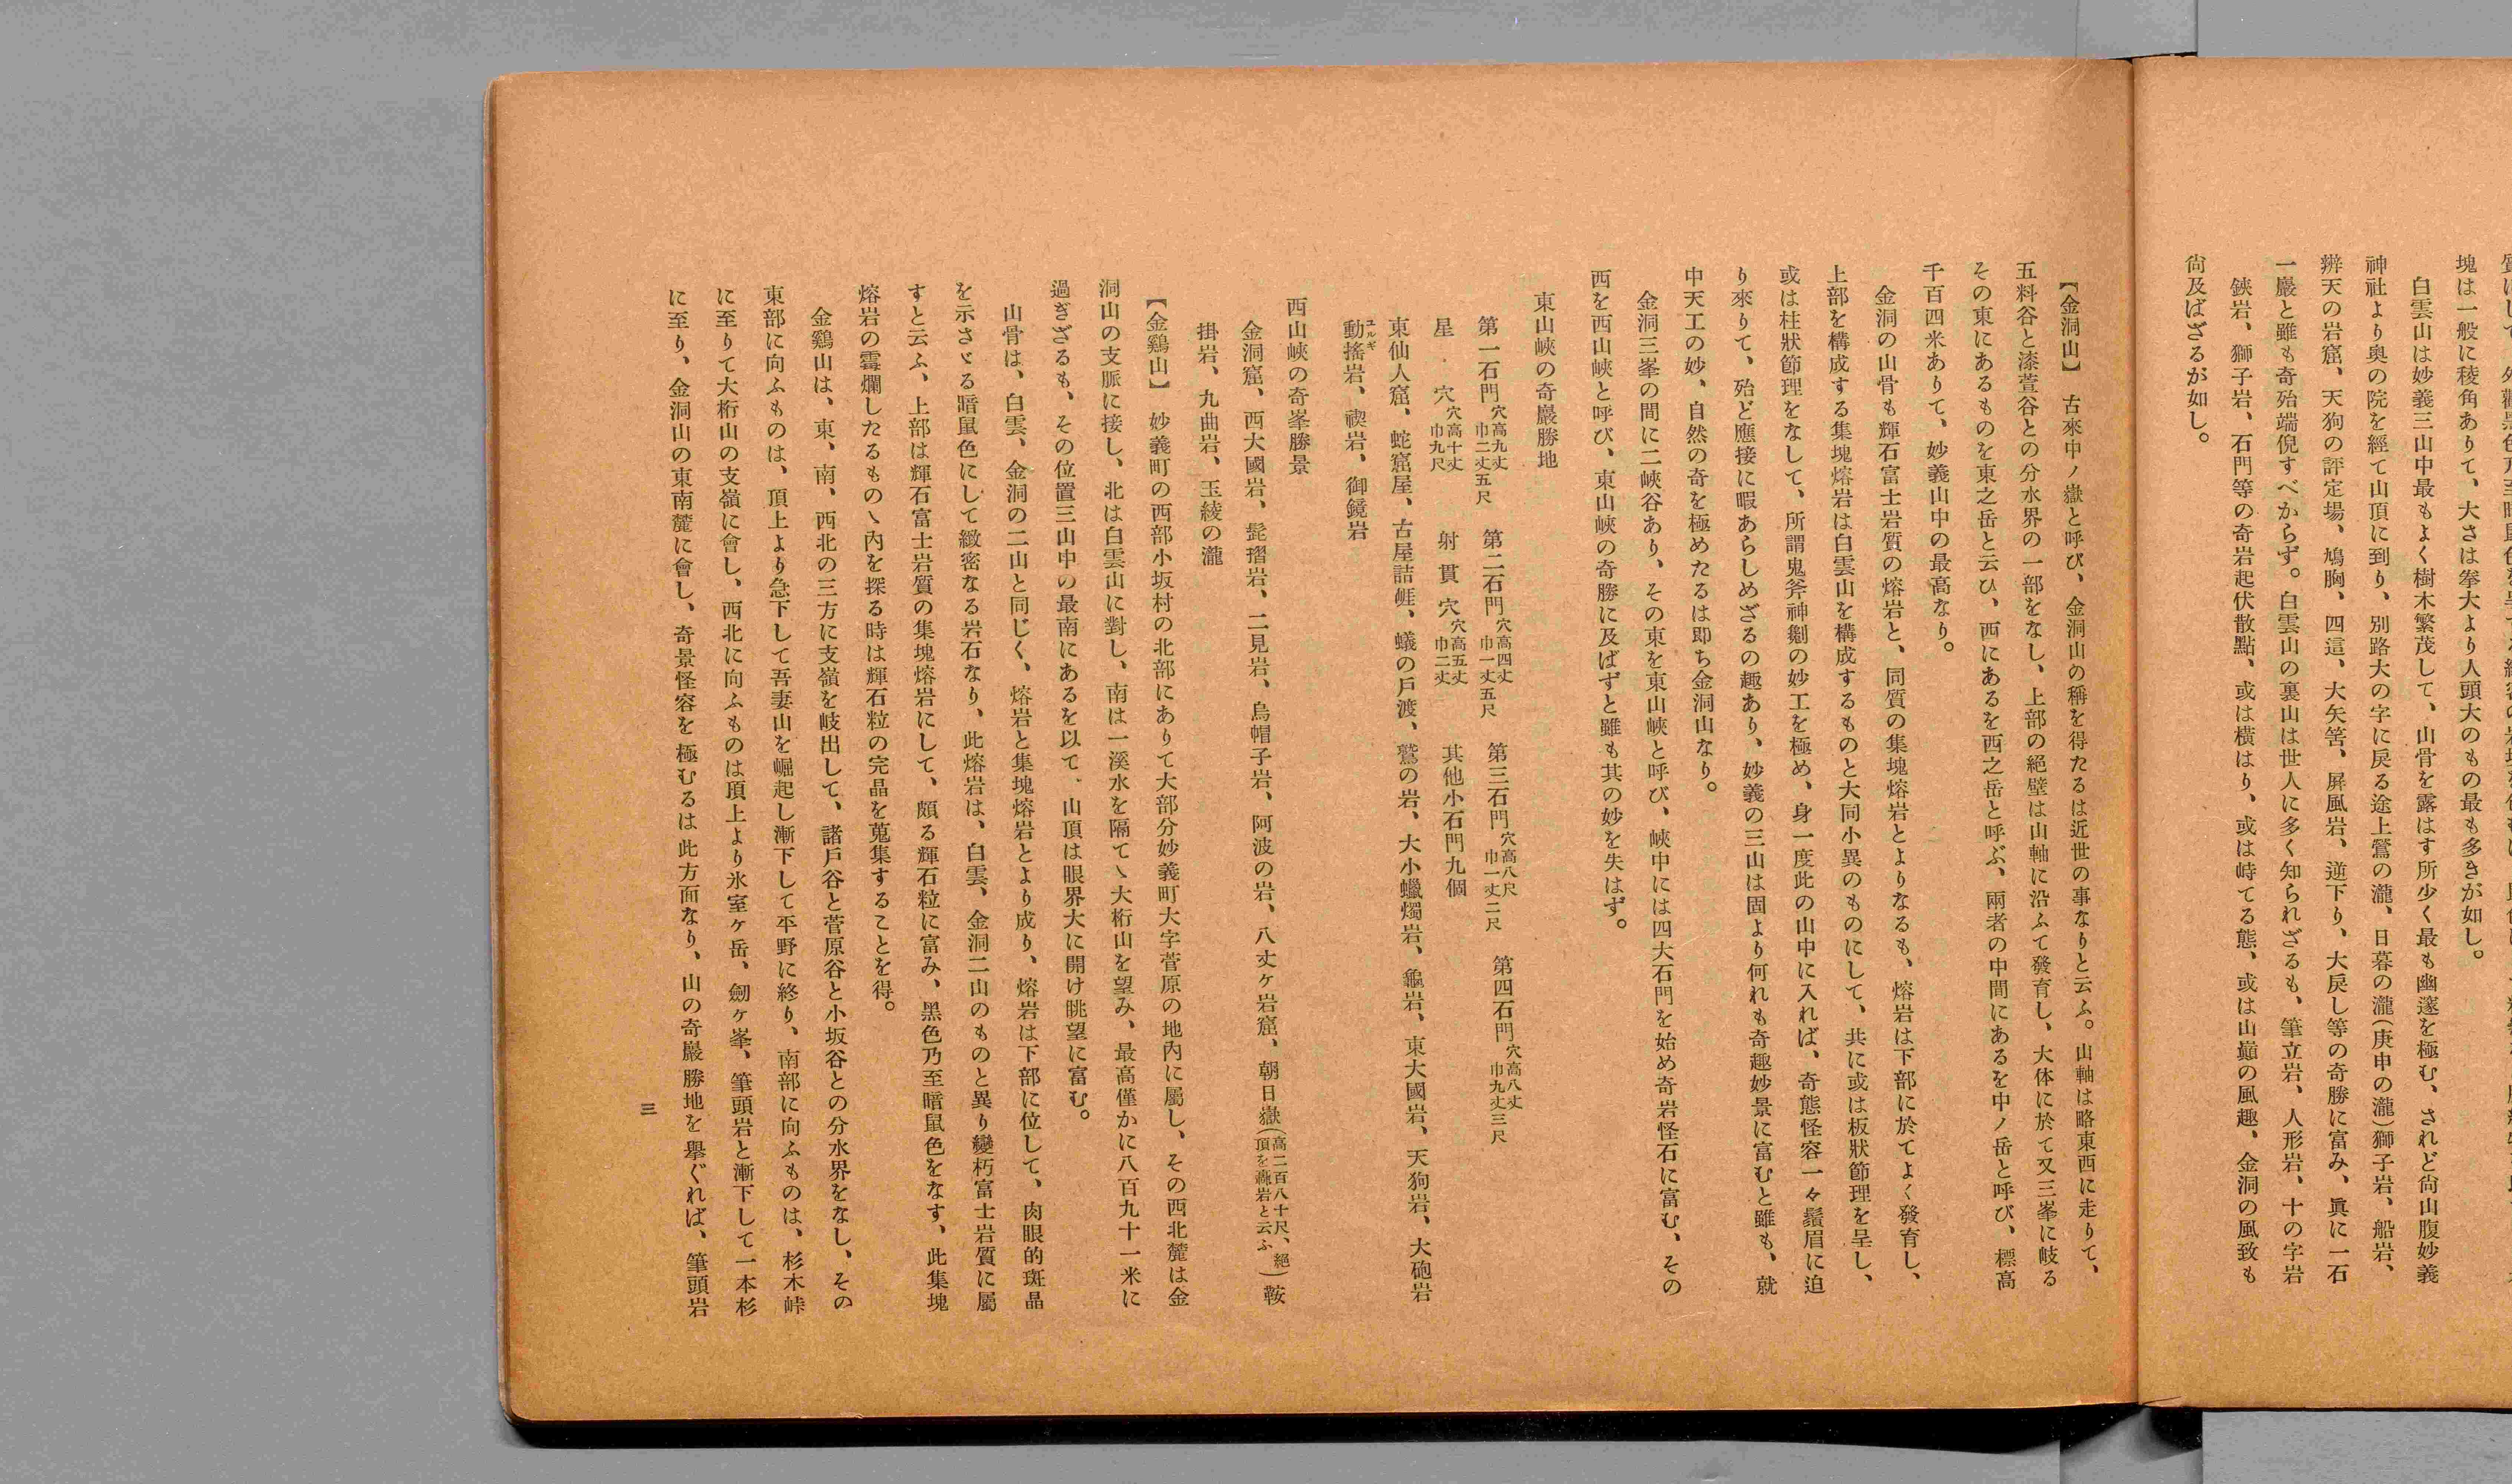 塊は一般に稜角ありて、大さは拳大より人頭大のもの最も多きが如し。
白雲山は妙義三山中最もよく樹木繁茂して、山骨を露はす所少く最も幽邃を極む、されど尙山腹妙義
神社より奥の院を經て山頂に到り、別路大の字に戾る途上鶯の瀧、日暮の瀧(庚申の瀧)獅子岩、船岩、
辨天の岩窟、天狗の評定場、鳩胸、四這、大矢筈、屛風岩、逆下り、大戾し等の奇勝に富み、眞に一石
一巖と雖も奇殆端倪すべからず。白雲山の裏山は世人に多く知られざるも、筆立岩、人形岩、十の字岩
鋏岩、獅子岩、石門等の奇岩起伏散點、或は橫はり、或は峙てる態、或は山巓の風趣、金洞の風致も
尙及ばざるが如し。
【金洞山】 古來中ノ嶽と呼び、金洞山の稱を得たるは近世の事なりと云ふ。山軸は略東西に走りて、
五料谷と漆萱谷との分水界の一部をなし、上部の絕壁は山軸に沿ふて發育し、大体に於て又三峯に岐る
その東にあるものを東之岳と云ひ、西にあるを西之岳と呼ぶ、兩者の中間にあるを中ノ岳と呼び、標高
千百四米ありて、妙義山中の最高なり。
金洞の山骨も輝石富士岩質の熔岩と、同質の集塊熔岩とよりなるも、熔岩は下部に於てよく發育し、
上部を構成する集塊熔岩は白雲山を構成するものと大同小異のものにして、共に或は板狀節理を呈し、
或は柱狀節理をなして、所謂鬼斧神劖の妙工を極め、身一度此の山中に入れば、奇態怪容一々鬚眉に迫
り來りて、殆ど應接に暇あらしめざるの趣あり、妙義の三山は固より何れも奇趣妙景に富むと雖も、就
中天工の妙、自然の奇を極めたるは卽ち金洞山なり。
金洞三峯の間に二峽谷あり、その東を東山峽と呼び、峽中には四大石門を始め奇岩怪石に富む、その
西を西山峽と呼び、東山峽の奇勝に及ばずと雖も其の妙を失はず。
東山峽の奇巖勝地
第一石門穴高九丈巾二丈五尺 第二石門穴高四丈巾一丈五尺 第三石門穴高八尺巾一丈二尺 第四石門穴高八丈巾九丈三尺
星 穴穴高十丈巾九尺 射貫穴穴高五丈巾二丈 其他小石門九個
東仙人窟、蛇窟屋、古屋詰崕、蟻の戸渡、鷲の岩、大小蠟燭岩、龜岩、東大國岩、天狗岩、大砲岩
動搖岩、禊岩、御鏡岩
ユルギ
西山峽の奇峯勝景
金洞窟、西大國岩、髭摺岩、二見岩、烏帽子岩、阿波の岩、八丈ヶ岩窟、朝日嶽(高二百八十尺、絕頂を轟岩と云ふ)鞍
掛岩、九曲岩、玉綾の瀧
【金鷄山】 妙義町の西部小坂村の北部にありて大部分妙義町大字菅原の地內に屬し、その西北麓は金
洞山の支脈に接し、北は白雲山に對し、南は一溪水を隔てゝ大桁山を望み、最高僅かに八百九十一米に
過ぎざるも、その位置三山中の最南にあるを以て、山頂は眼界大に開け眺望に富む。
山骨は、白雲、金洞の二山と同じく、熔岩と集塊熔岩とより成り、熔岩は下部に位して、肉眼的斑晶
を示さゞる暗鼠色にして緻密なる岩石なり、此熔岩は、白雲、金洞二山のものと異り變朽富士岩質に屬
すと云ふ、上部は輝石富士岩質の集塊熔岩にして、頗る輝石粒に富み、黑色乃至暗鼠色をなす、此集塊
熔岩の霉爛したるものゝ內を探る時は輝石粒の完晶を蒐集することを得。
金鷄山は、東、南、西北の三方に支嶺を岐出して、諸戸谷と菅原谷と小坂谷との分水界をなし、その
東部に向ふものは、頂上より急下して吾妻山を崛起し漸下して平野に終り、南部に向ふものは、杉木峠
に至りて大桁山の支嶺に會し、西北に向ふものは頂上より氷室ヶ岳、劒ヶ峯、筆頭岩と漸下して一本杉
に至り、金洞山の東南麓に會し、奇景怪容を極むるは此方面なり、山の奇巖勝地を擧ぐれば、筆頭岩
三